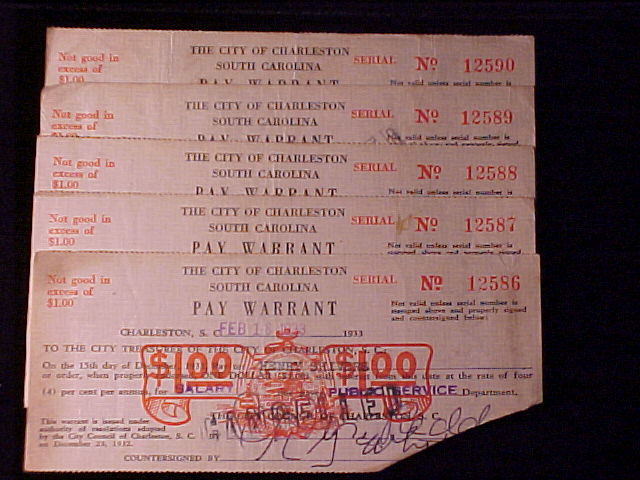 Not good in excess of $1.00
THE CITY OF CHARLESTON
SOUTH CAROLINA
PAY WARRANT
SERIAL No 12590
Not valid unless serial number is
Not good in excess of
THE CITY OF CHARLESTON
SOUTH CAROLINA
PAY WARRANT
SERIAL No 12589
Not valid unless serial number is
Not good in excess of $1.00
THE CITY OF CHARLESTON
SOUTH CAROLINA
PAY WARRANT
SERIAL No 12588
Not valid unless serial number is
Not good in excess of $1.00
THE CITY OF CHARLESTON
SOUTH CAROLINA
PAY WARRANT
SERIAL No 12587
Not valid unless serial number is
stamped above and properly signed
Not good in excess of $1.00
THE CITY OF CHARLESTON
SOUTH CAROLINA
PAY WARRANT
SERIAL No 12586
Not valid unless serial number is
stamped above and properly signed
and countersigned below:
CHARLESTON, S. C. FEB 1933 1933
TO THE CITY TREASURER OF THE CITY CHARLESTON, S. C.
$1.00 $1.00
On the 15th day of
or order, when properly ONE DOLLAR date at the rate of four
(4) per cent per annum, for SALARY PUBLIC SERVICE Department,
THE CITY OF CHARLESTON, S. C.
This warrant is issued under
authority of resolutions adopted
by the City Council of Charleston, S. C. BY
on December 23, 1932.
COUNTERSIGNED BY